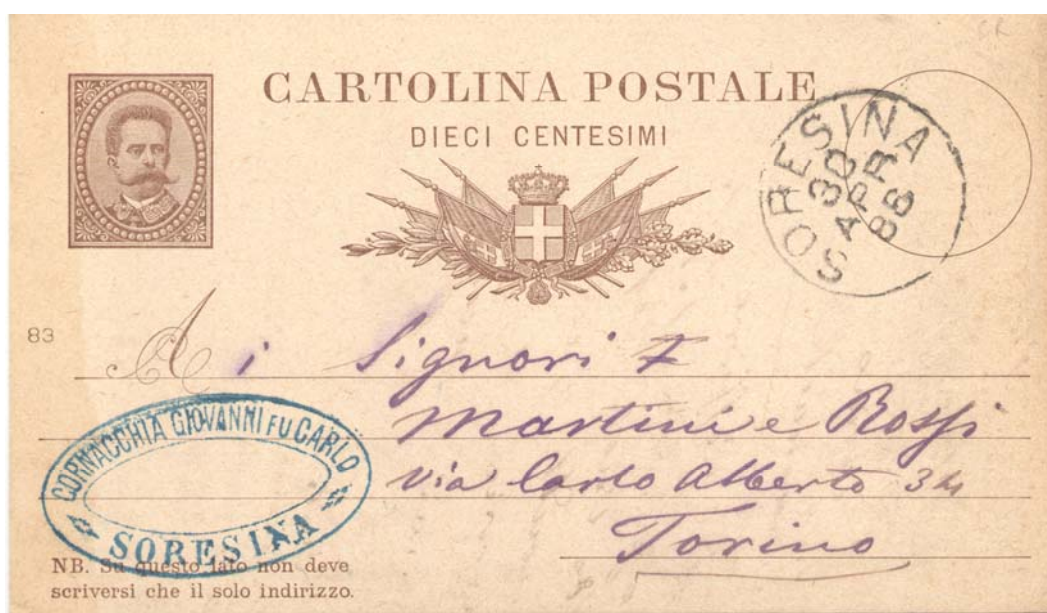 CARTOLINA POSTALE
DIECI CENTESIMI
SORESINA
30
APR
86
83
Ai Signori F
Martini e Rossi
via Carlo Alberto 34
Torino
CORNACCHIA GIOVANNI FU CARLO
SORESINA
NB. Su questo lato non deve
scriversi che il solo indirizzo.